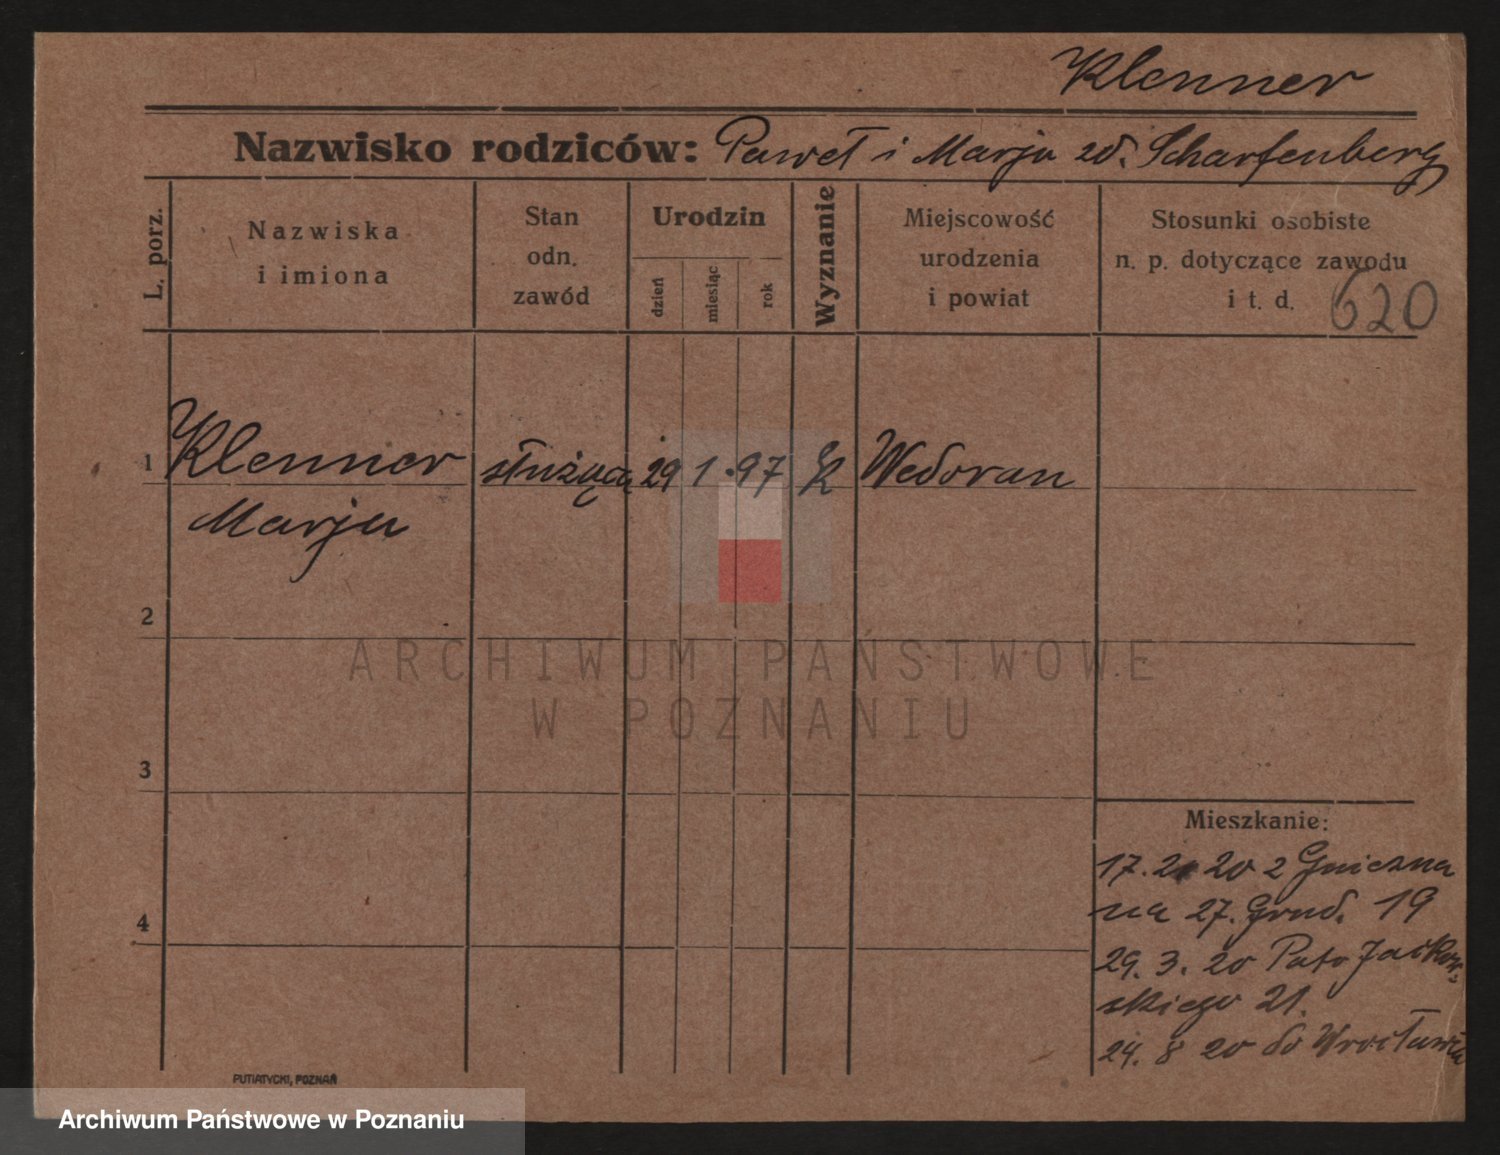 Klenner
Nazwisko rodziców: Paweł i Marja zd. Scharfenberg
L. porz.
Nazwiska
i imiona
Stan
odn.
zawód
Urodzin
dzień
miesiąc
rok
Wyznanie
Miejscowość
urodzenia
i powiat
Stosunki osobiste
n. p. dotyczące zawodu
i t. d. 620
1 Klenner służąca 29 1. 97 K Wedoran
Marja
2
ARCHIWUM PAŃSTWOWE
W POZNANIU
3
4
Mieszkanie:
17. 2 20 z Gniezna
na 27. Grud. 19
29. 3. 20 Jackow-
skiego 21.
24. 8 20 do Wrocławia
PUTIATYCKI, POZNAŃ
Archiwum Państwowe w Poznaniu